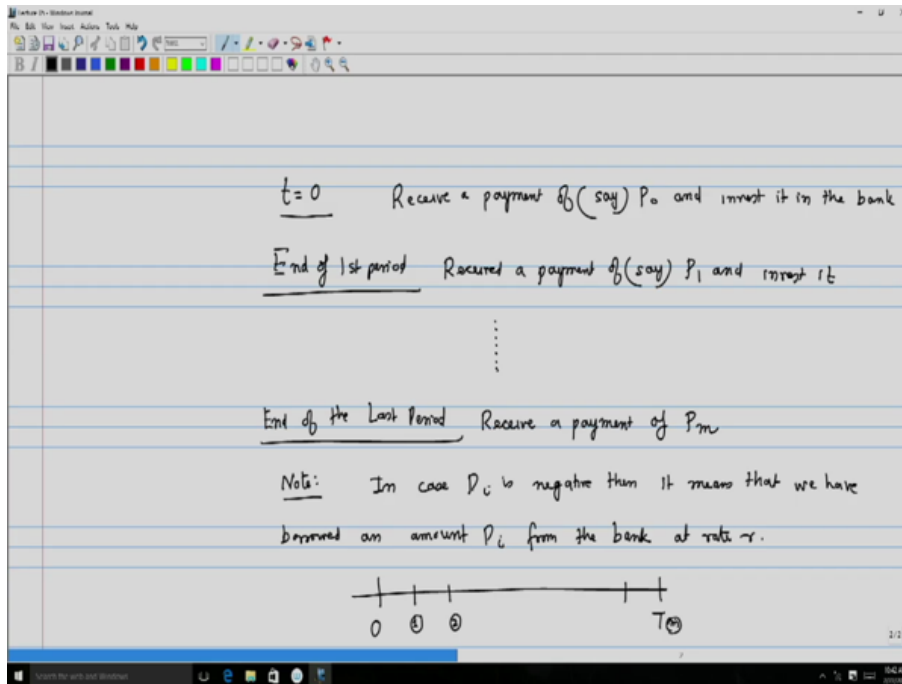 Lecture 01 - Windows Journal
File Edit View Insert Actions Tools Help
B I
t = 0 Receive a payment of (say) P₀ and invest it in the bank
End of 1st period Received a payment of (say) P₁ and invest it
End of the Last Period Receive a payment of Pₘ
Note: In case Pᵢ is negative then it means that we have
borrowed an amount Pᵢ from the bank at rate r.
0 ① ② T ⓜ
2/2
Search the web and Windows